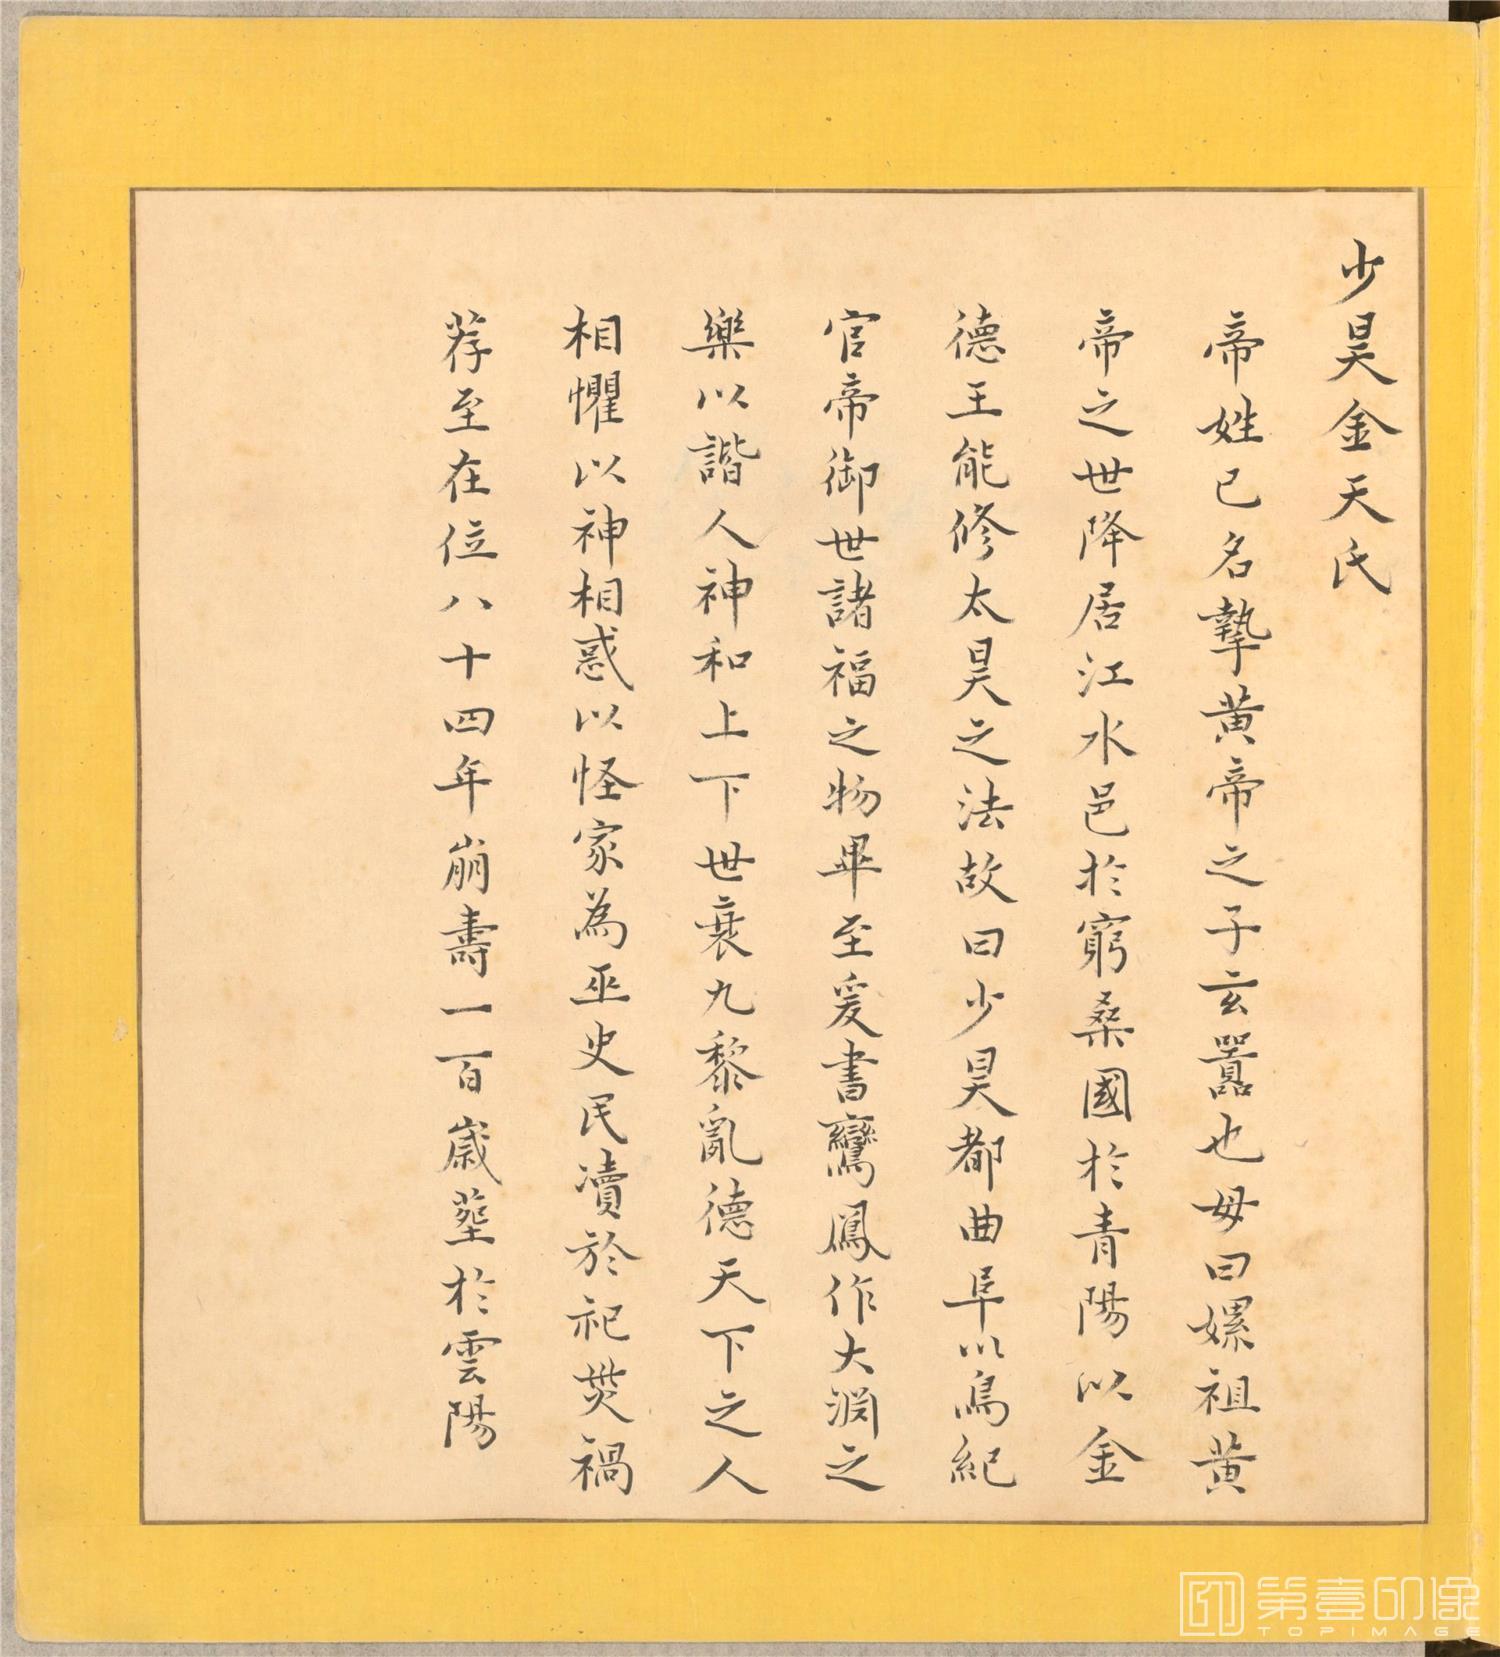 少昊金天氏
帝姓已名摯黃帝之子玄囂也母曰嫘祖黃
帝之世降居江水邑於窮桑國於青陽以金
德王能修太昊之法故曰少昊都曲阜以鳥紀
官帝御世諸福之物畢至爰書鸞鳳作大淵之
樂以諧人神和上下世衰九黎亂德天下之人
相懼以神相惑以怪家為巫史民瀆於祀災禍
荐至在位八十四年崩壽一百歲塟於雲陽
第壹印像
TOPIMAGE